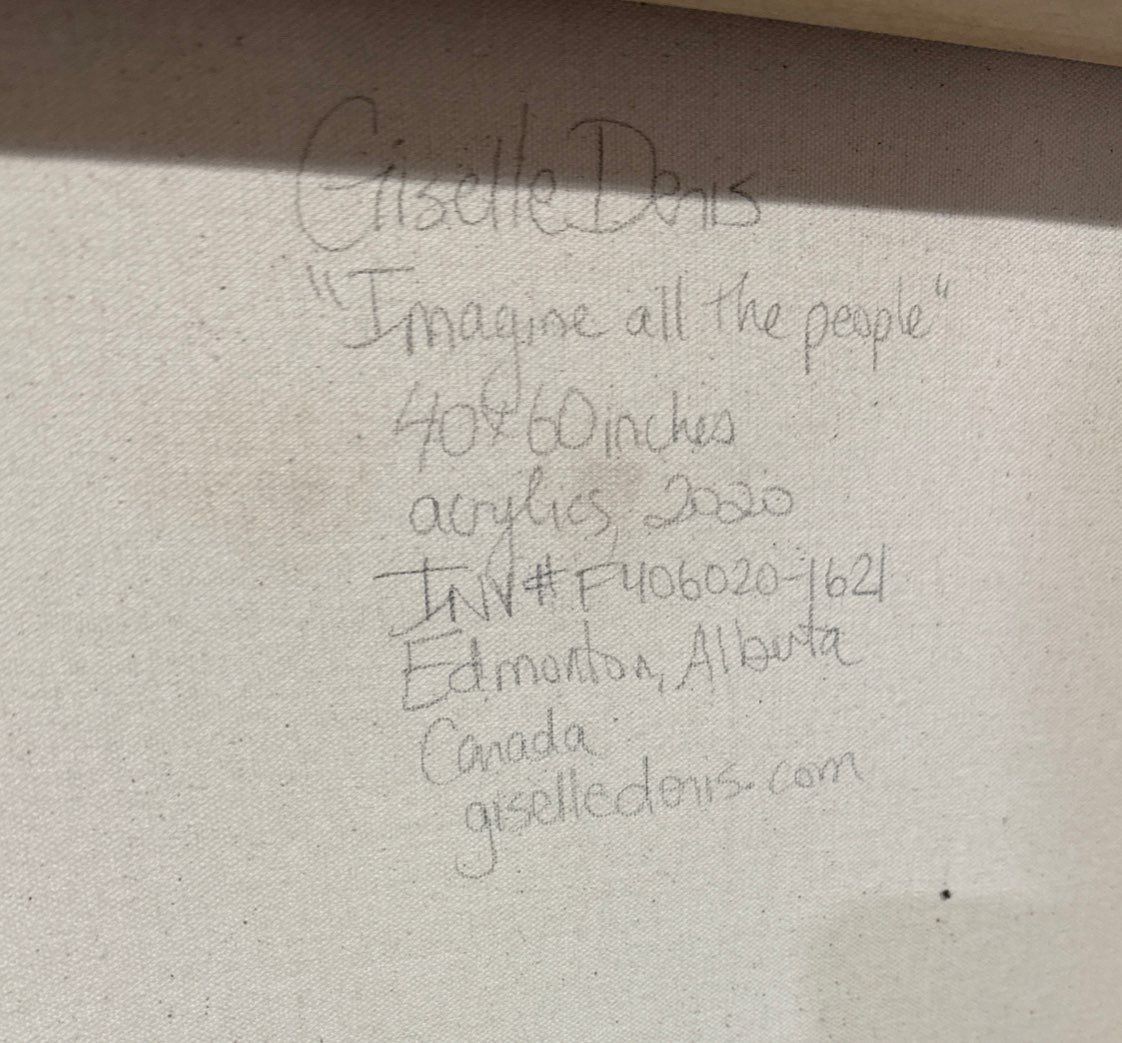 Giselle Denis
"Imagine all the people"
40x60 inches
acrylics, 2020
INV# F406020-1621
Edmonton, Alberta
Canada
giselledenis.com